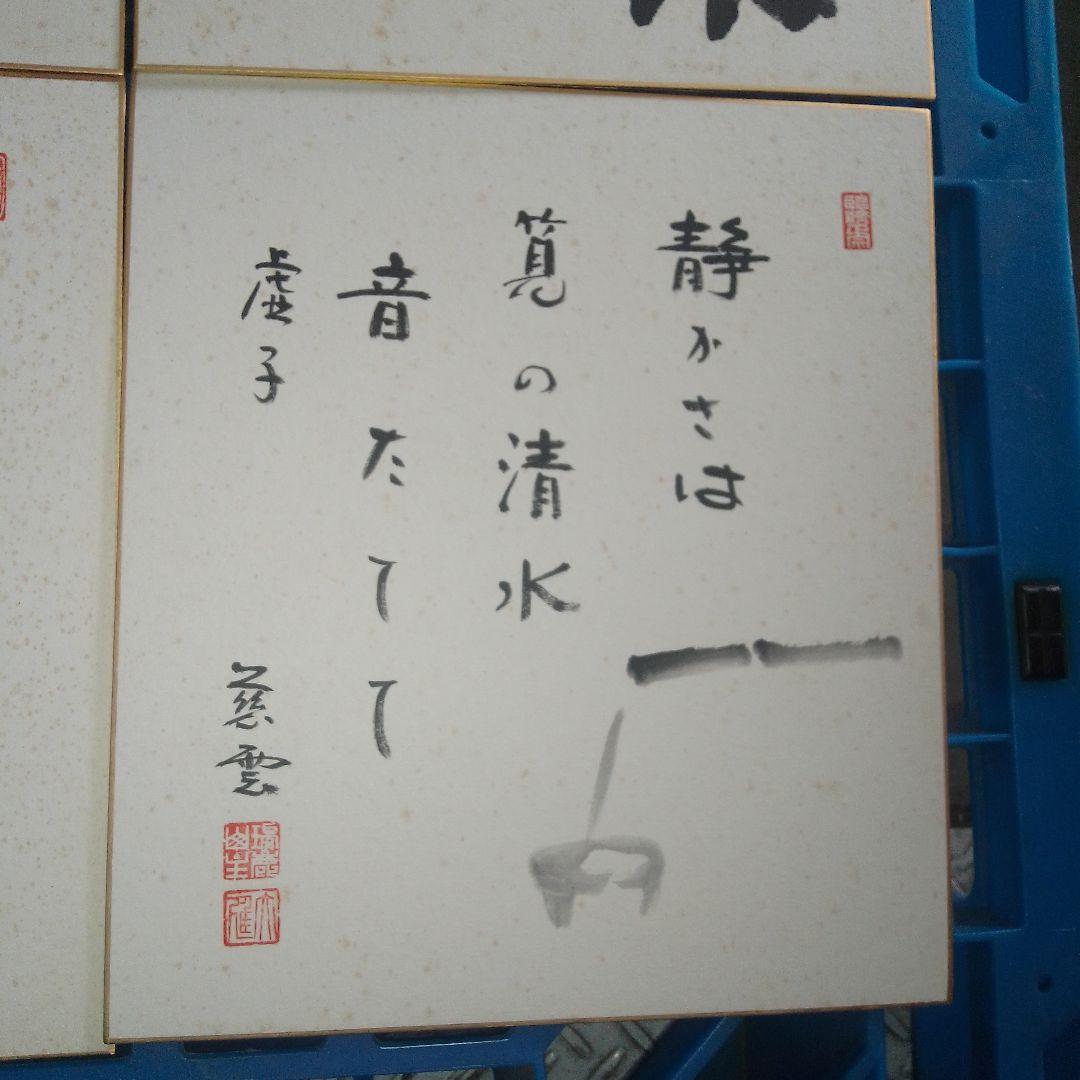 静かさは
筧の清水
音たてて
虚子
慈雲